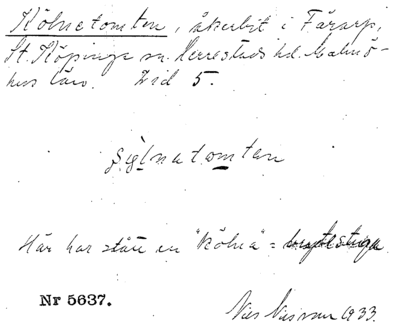 Kölnetomten, åkerbit i Fårarp,
St. Köpinge sn. Herrestads hd. Malmö-
hus län. Zid 5.
Här har stått en "kölna" =
Nr 5637.
Nils Nilsson 1933.